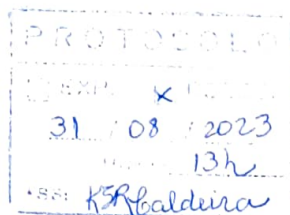 PROTOCOLO
x
31 / 08 / 2023
13h
ASS: KSRCaldeira